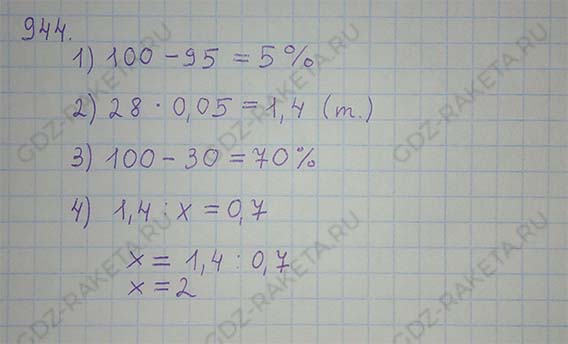 944.
1) 100 - 95 = 5%
2) 28 · 0,05 = 1,4 (т.)
3) 100 - 30 = 70%
4) 1,4 : x = 0,7
x = 1,4 : 0,7
x = 2
GDZ-RAKETA.RU
GDZ-RAKETA.RU
GDZ-RAKETA.RU
GDZ-RAKETA.RU
GDZ-RAKETA.RU
GDZ-RAKETA.RU